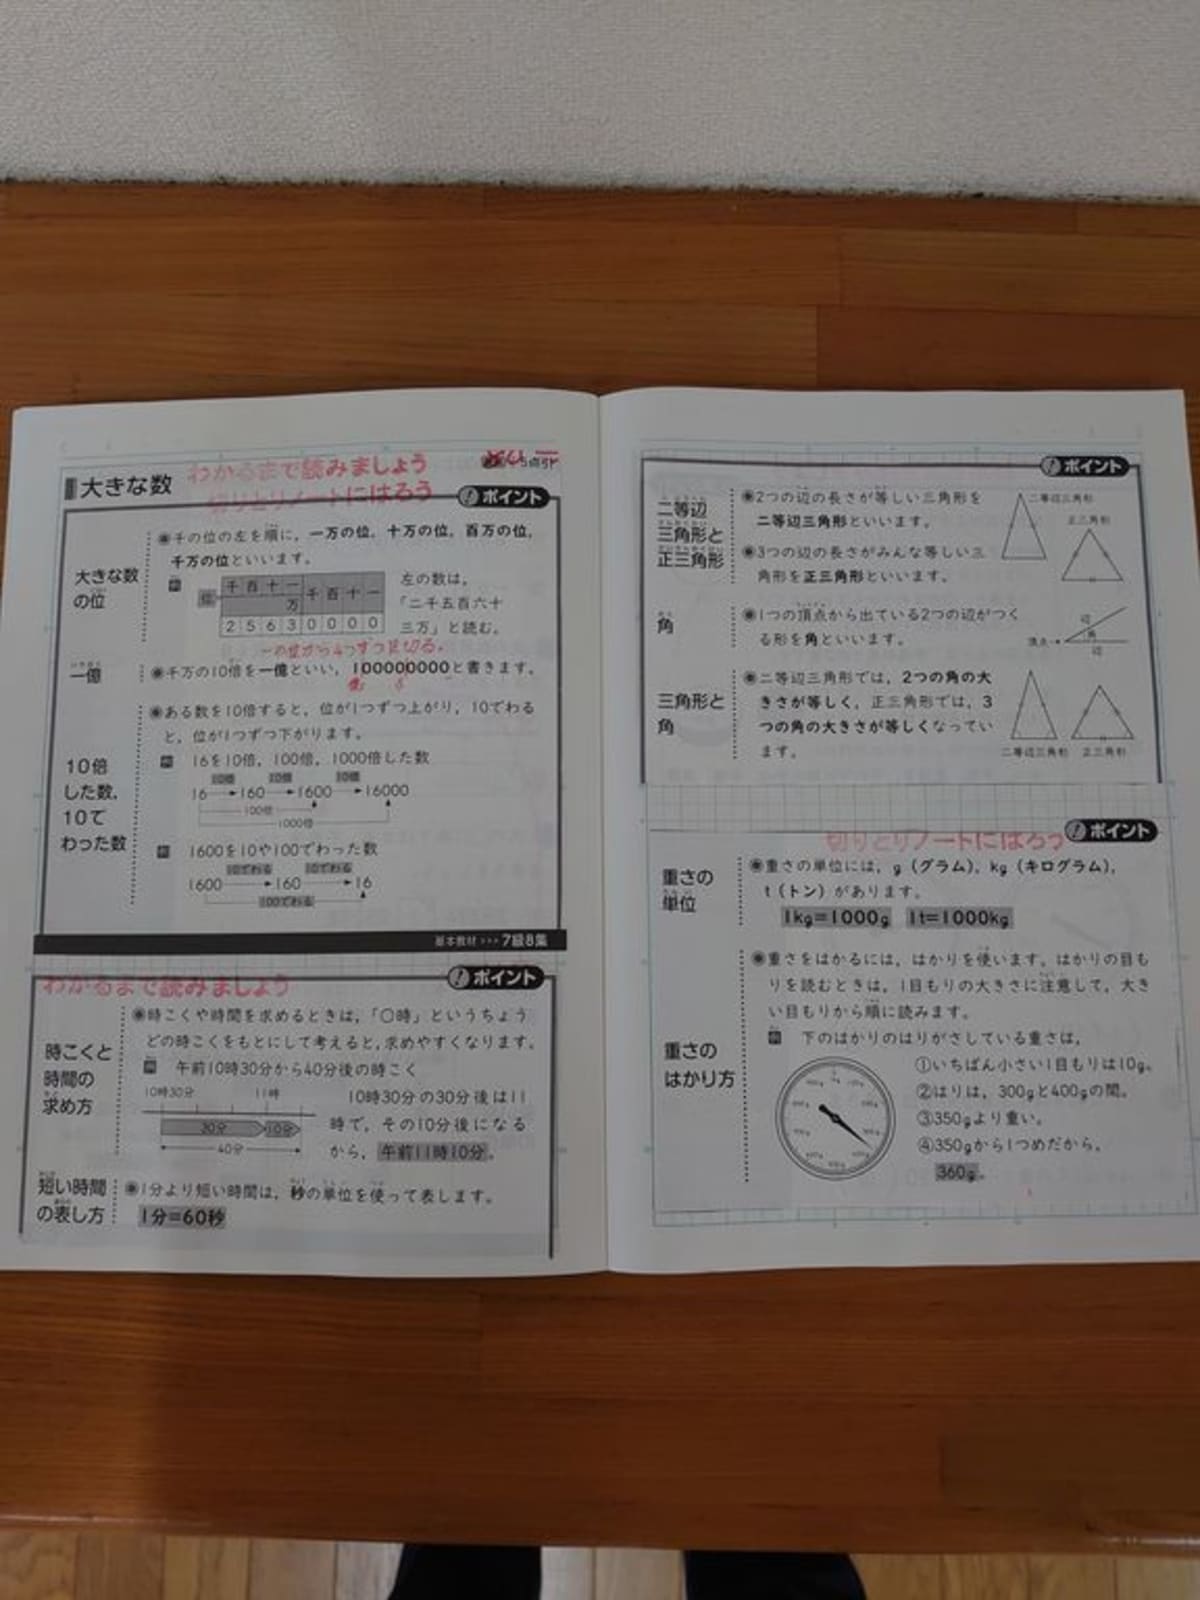 わかるまで読みましょう
5点シ
切りとりノートにはろう
大きな数
ポイント
大きな数の位
◉千の位の左を順に，一万の位，十万の位，百万の位，
千万の位といいます。
例
位
千百十一千百十一
万
2 5 6 3 0 0 0 0
左の数は，
「二千五百六十
三万」と読む。
一の位から4つずつ区切る。
一億
◉千万の10倍を一億といい，100000000と書きます。
億
10倍
した数，
10で
わった数
◉ある数を10倍すると，位が1つずつ上がり，10でわる
と，位が1つずつ下がります。
例 16を10倍，100倍，1000倍した数
10倍 10倍 10倍
16 → 160 → 1600 → 16000
100倍
1000倍
例 1600を10や100でわった数
10でわる 10でわる
1600 → 160 → 16
100でわる
基本教材 >>> 7級8集
わかるまで読みましょう
ポイント
時こくと
時間の
求め方
◉時こくや時間を求めるときは，「○時」というちょう
どの時こくをもとにして考えると，求めやすくなります。
例 午前10時30分から40分後の時こく
10時30分 11時
30分 10分
40分
10時30分の30分後は11
時で，その10分後になる
から，午前11時10分。
短い時間
の表し方
◉1分より短い時間は，秒の単位を使って表します。
1分=60秒
ポイント
二等辺
三角形と
正三角形
◉2つの辺の長さが等しい三角形を
二等辺三角形といいます。
◉3つの辺の長さがみんな等しい三
角形を正三角形といいます。
二等辺三角形
正三角形
角
◉1つの頂点から出ている2つの辺がつく
る形を角といいます。
辺
頂点
角
辺
三角形と
角
◉二等辺三角形では，2つの角の大
きさが等しく，正三角形では，3
つの角の大きさが等しくなってい
ます。
二等辺三角形 正三角形
切りとりノートにはろう
ポイント
重さの
単位
◉重さの単位には，g（グラム），kg（キログラム），
t（トン）があります。
1kg=1000g 1t=1000kg
重さの
はかり方
◉重さをはかるには，はかりを使います。はかりの目も
りを読むときは，1目もりの大きさに注意して，大き
い目もりから順に読みます。
例 下のはかりのはりがさしている重さは，
①いちばん小さい1目もりは10g。
②はりは，300gと400gの間。
③350gより重い。
④350gから1つめだから，
360g。